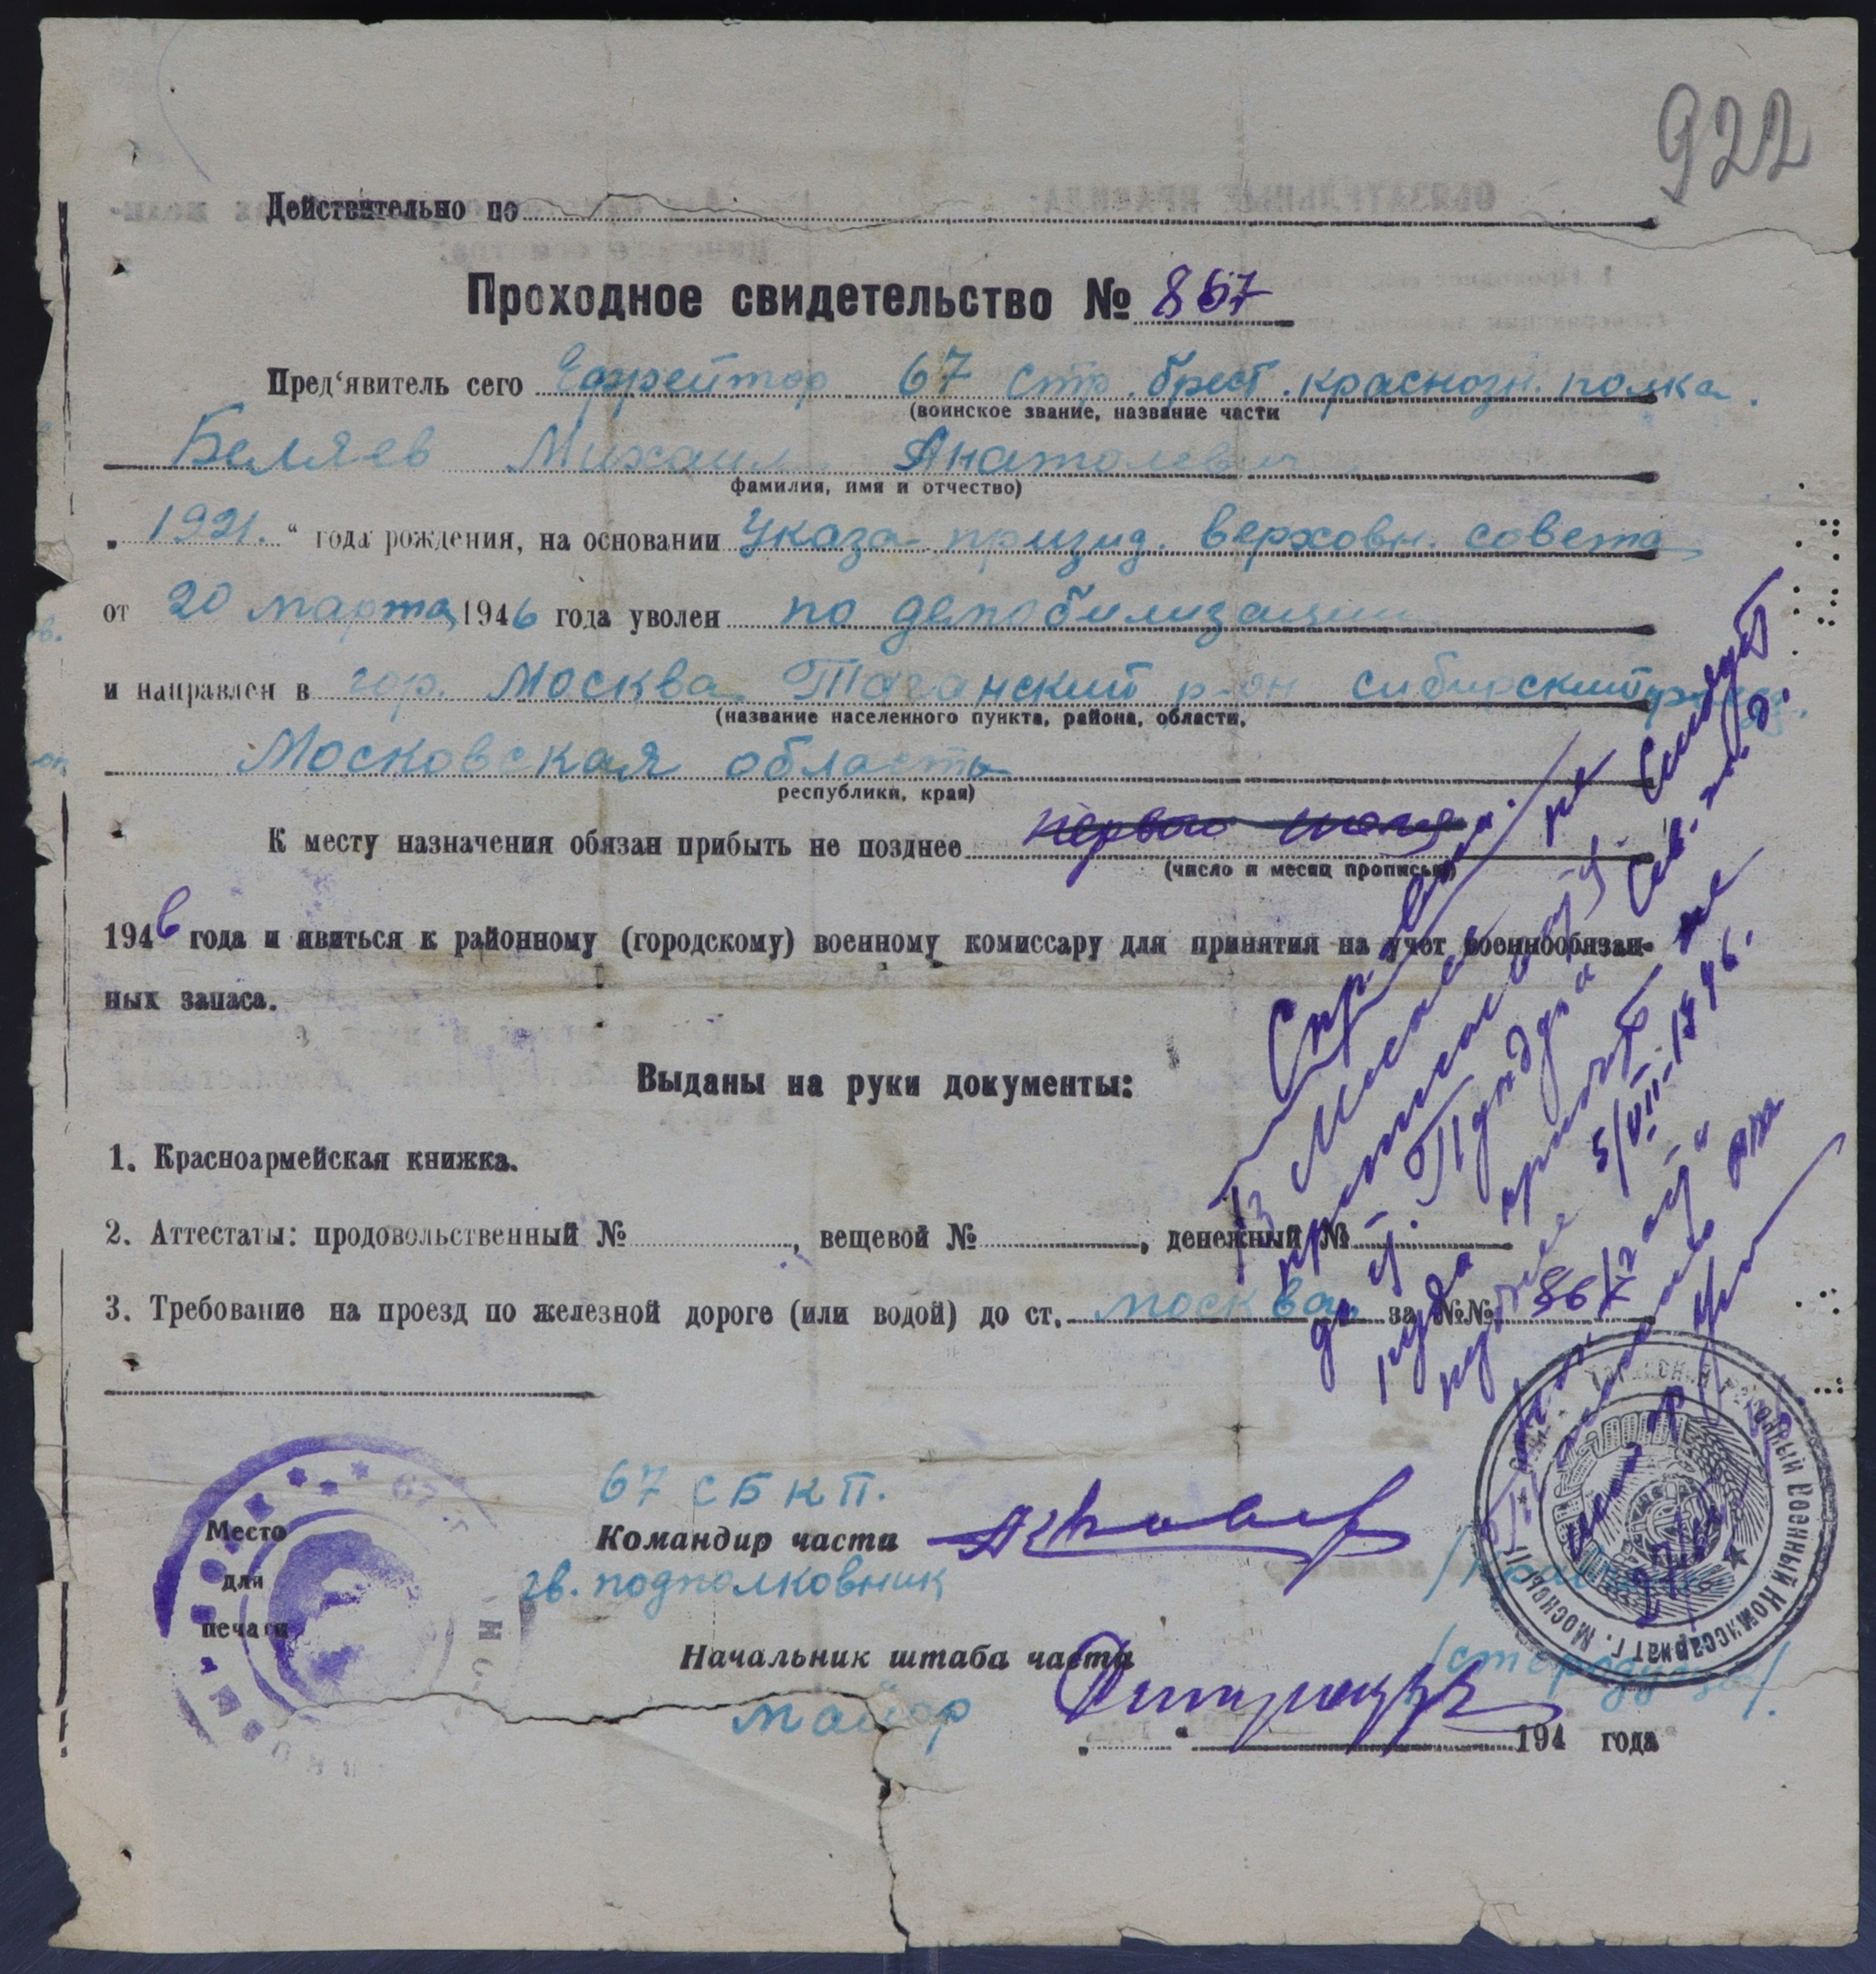 922
Действительно по
Проходное свидетельство № 867
Пред‘явитель сего Ефрейтор 67 стр. брест. краснозн. полка.
(воинское звание, название части
Беляев Михаил Анатолевич
фамилия, имя и отчество)
„1921.“ года рождения, на основании Указа призид. верховн. совета
от 20 марта 1946 года уволен по демобилизации
и направлен в гор. Москва Таганский р-он сибирский
(название населенного пункта, района, области,
Московская область
республики, края)
К месту назначения обязан прибыть не позднее первого июля
(число и месяц прописью)
1946 года и явиться к районному (городскому) военному комиссару для принятия на учет военнообязан-
ных запаса.
Выданы на руки документы:
1. Красноармейская книжка.
2. Аттестаты: продовольственный № , вещевой № , денежный №
3. Требование на проезд по железной дороге (или водой) до ст. москва за №№ 867
67 СБКП.
Место
для
печати
Командир части
гв. подполковник
Начальник штаба части
майор
„ “ 194 года
районный Военный Комиссариат г. Москвы
Следует
из Москвы
5/VII-1946.